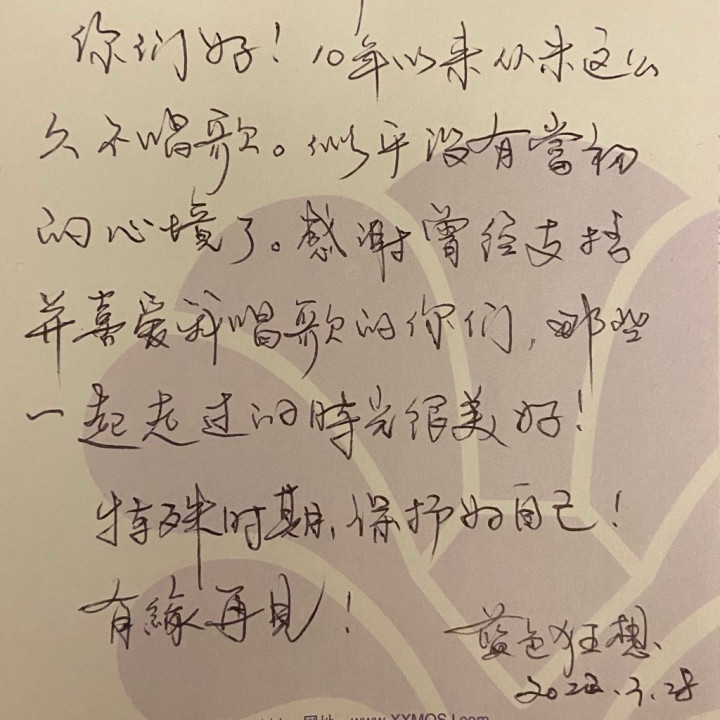 你们好！10年以来从未这么
久不唱歌。似乎没有當初
的心境了。感謝曾经支持
并喜爱我唱歌的你们，那些
一起走过的時光很美好！
特殊时期，保护好自己！
有緣再見！
蓝色狂想
2022.3.28
网址 www.XXMQS.com